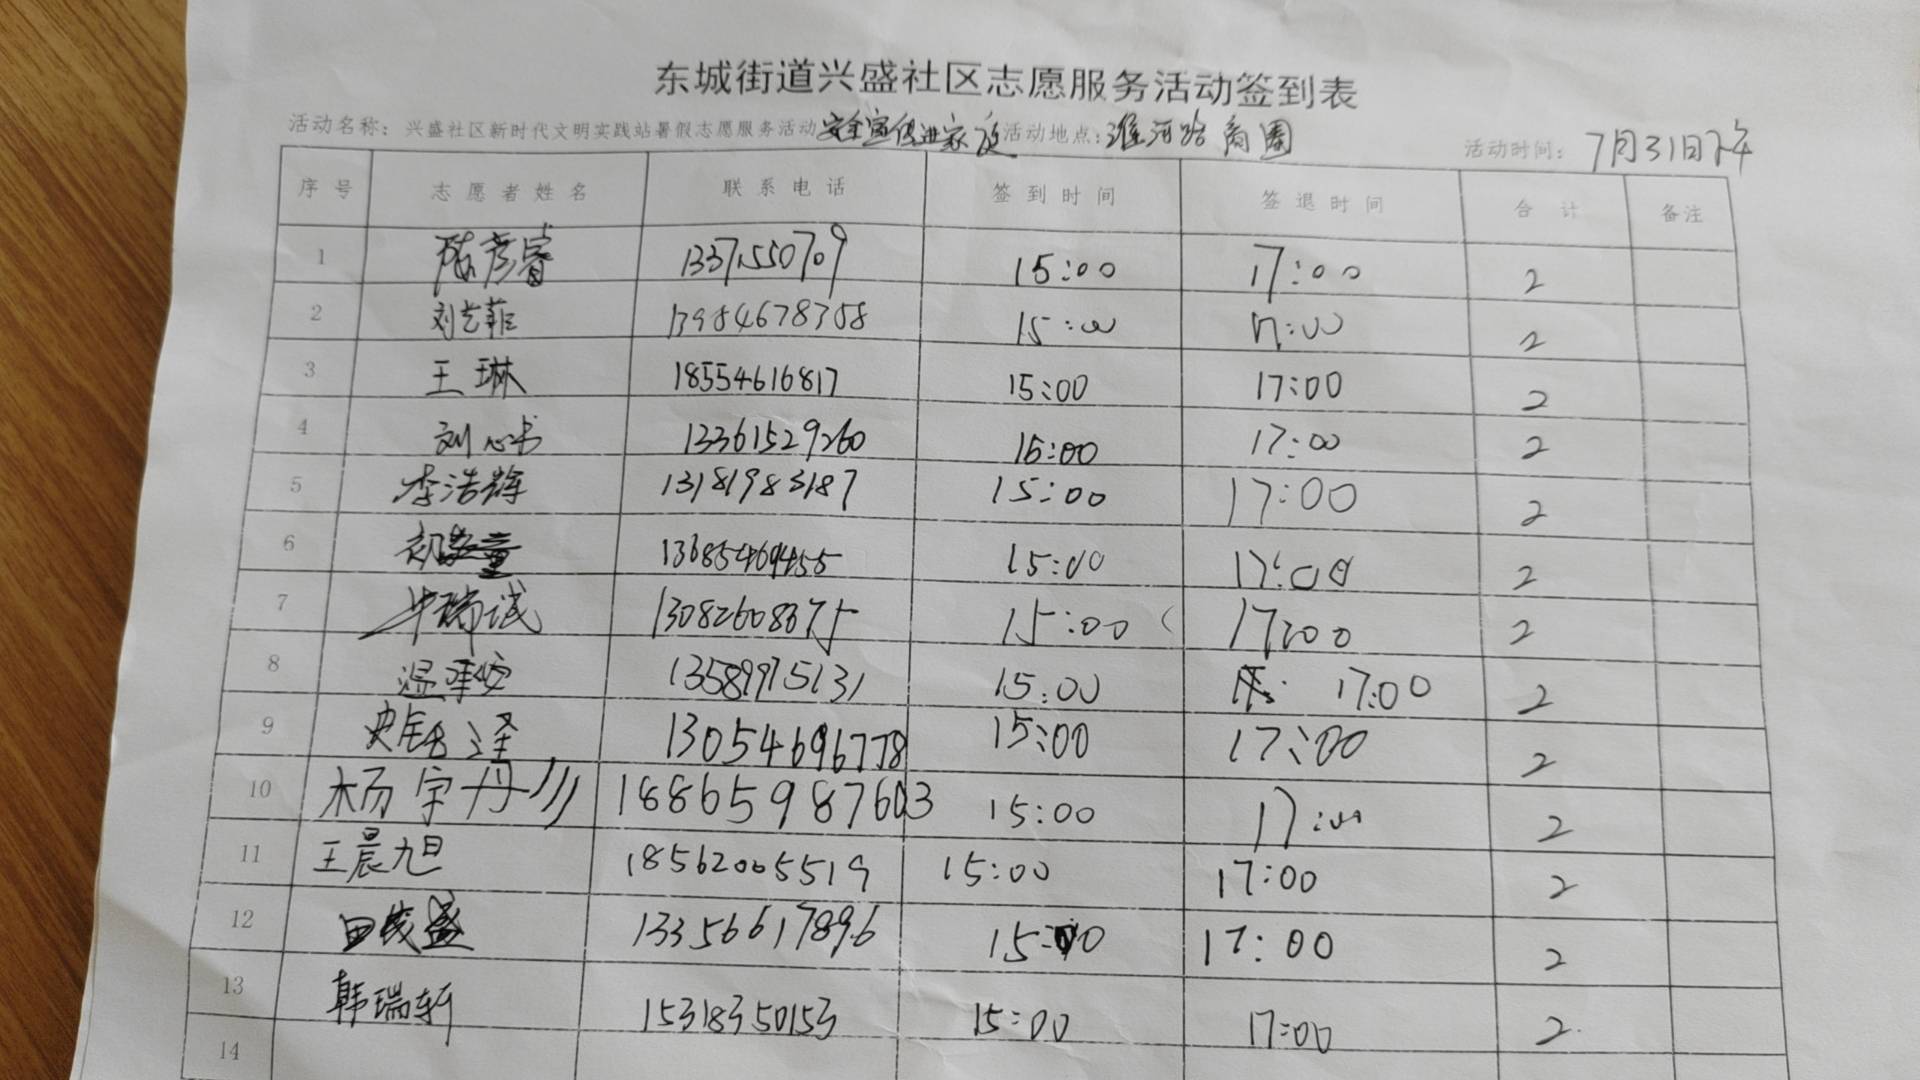 东城街道兴盛社区志愿服务活动签到表
活动名称：兴盛社区新时代文明实践站暑假志愿服务活动安全宣传进家庭 活动地点：淮河路商圈 活动时间：7月31日下午
序号 志愿者姓名 联系电话 签到时间 签退时间 合计 备注
1 陈彦睿 1337550709 15:00 17:00 2
2 刘艺菲 13954678358 15:00 17:00 2
3 王琳 18554616817 15:00 17:00 2
4 刘心书 13361529260 15:00 17:00 2
5 李浩辉 13181983187 15:00 17:00 2
6 13685469455 15:00 17:00 2
7 毕瑞诚 13082608375 15:00 17:00 2
8 温承安 13589975131 15:00 17:00 2
9 史铭泽 13054696778 15:00 17:00 2
10 杨宇丹 18865987603 15:00 17:00 2
11 王晨旭 18562005519 15:00 17:00 2
12 田茂盛 13356617896 15:00 17:00 2
13 韩瑞轩 15318350153 15:00 17:00 2
14